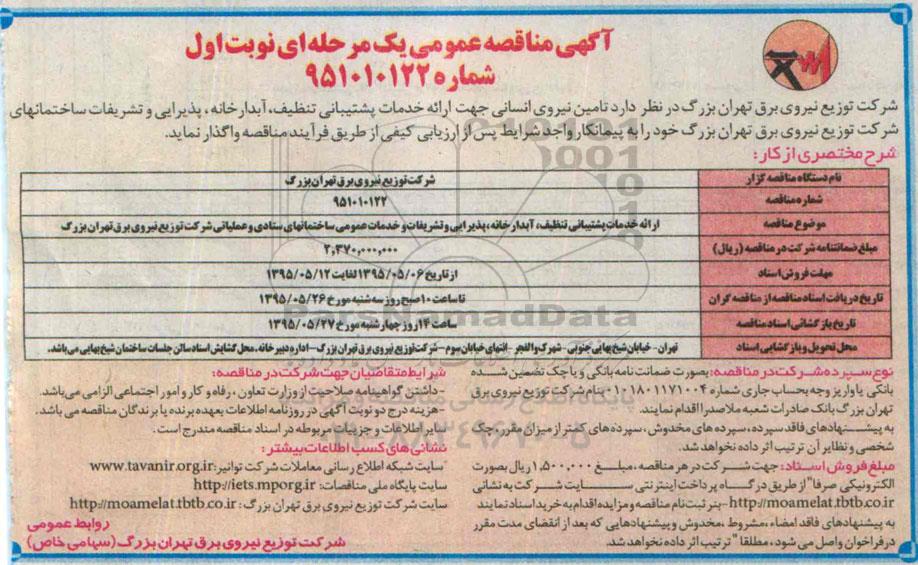 آگهی مناقصه عمومی یک مرحله ای نوبت اول
شماره ۹۵۱۰۱۰۱۲۲
شرکت توزیع نیروی برق تهران بزرگ در نظر دارد تامین نیروی انسانی جهت ارائه خدمات پشتیبانی تنظیف، آبدارخانه، پذیرایی و تشریفات ساختمانهای
شرکت توزیع نیروی برق تهران بزرگ خود را به پیمانکار واجد شرایط پس از ارزیابی کیفی از طریق فرآیند مناقصه واگذار نماید.
شرح مختصری از کار:
نام دستگاه مناقصه گزار شرکت توزیع نیروی برق تهران بزرگ
شماره مناقصه ۹۵۱۰۱۰۱۲۲
موضوع مناقصه ارائه خدمات پشتیبانی تنظیف، آبدارخانه، پذیرایی و تشریفات و خدمات عمومی ساختمانهای ستادی و عملیاتی شرکت توزیع نیروی برق تهران بزرگ
مبلغ ضمانتنامه شرکت در مناقصه (ریال) ۲,۳۷۰,۰۰۰,۰۰۰
مهلت فروش اسناد از تاریخ ۱۳۹۵/۰۵/۰۶ لغایت ۱۳۹۵/۰۵/۱۲
تاریخ دریافت اسناد مناقصه از مناقصه گران تا ساعت ۱۰ صبح روز سه شنبه مورخ ۱۳۹۵/۰۵/۲۶
تاریخ بازگشائی اسناد مناقصه ساعت ۱۴ روز چهارشنبه مورخ ۱۳۹۵/۰۵/۲۷
محل تحویل و بازگشایی اسناد تهران - خیابان شیخ بهایی جنوبی - شهرک والفجر - انتهای خیابان سوم - شرکت توزیع نیروی برق تهران بزرگ - اداره دبیرخانه. محل گشایش اسناد سالن جلسات ساختمان شیخ بهایی می باشد.
نوع سپرده شرکت در مناقصه: بصورت ضمانت نامه بانکی و یا چک تضمین شده
بانکی یا واریز وجه بحساب جاری شماره ۰۱۰۱۸۰۱۱۷۱۰۰۴ بنام شرکت توزیع نیروی برق
تهران بزرگ بانک صادرات شعبه ملاصدرا اقدام نمایند.
به پیشنهادهای فاقد سپرده، سپرده های مخدوش، سپرده های کمتر از میزان مقرر، چک
شخصی و نظایر آن ترتیب اثر داده نخواهد شد.
مبلغ فروش اسناد: جهت شرکت در هر مناقصه، مبلغ ۱,۵۰۰,۰۰۰ ریال بصورت
الکترونیکی صرفا" از طریق درگاه پرداخت اینترنتی سایت شرکت به نشانی
http://moamelat.tbtb.co.ir - بنر ثبت نام مناقصه و مزایده اقدام به خرید اسناد نمایند
به پیشنهادهای فاقد امضاء، مشروط، مخدوش و پیشنهادهایی که بعد از انقضای مدت مقرر
در فراخوان واصل می شود، مطلقا" ترتیب اثر داده نخواهد شد.
شرایط متقاضیان جهت شرکت در مناقصه:
-داشتن گواهینامه صلاحیت از وزارت تعاون، رفاه و کار و امور اجتماعی الزامی می باشد.
-هزینه درج دو نوبت آگهی در روزنامه اطلاعات بعهده برنده یا برندگان مناقصه می باشد.
سایر اطلاعات و جزییات مربوطه در اسناد مناقصه مندرج است.
نشانی های کسب اطلاعات بیشتر:
سایت شبکه اطلاع رسانی معاملات شرکت توانیر: www.tavanir.org.ir
سایت پایگاه ملی مناقصات: http://iets.mporg.ir
سایت شرکت توزیع نیروی برق تهران بزرگ: http://moamelat.tbtb.co.ir
روابط عمومی
شرکت توزیع نیروی برق تهران بزرگ (سهامی خاص)
ParsNamadData